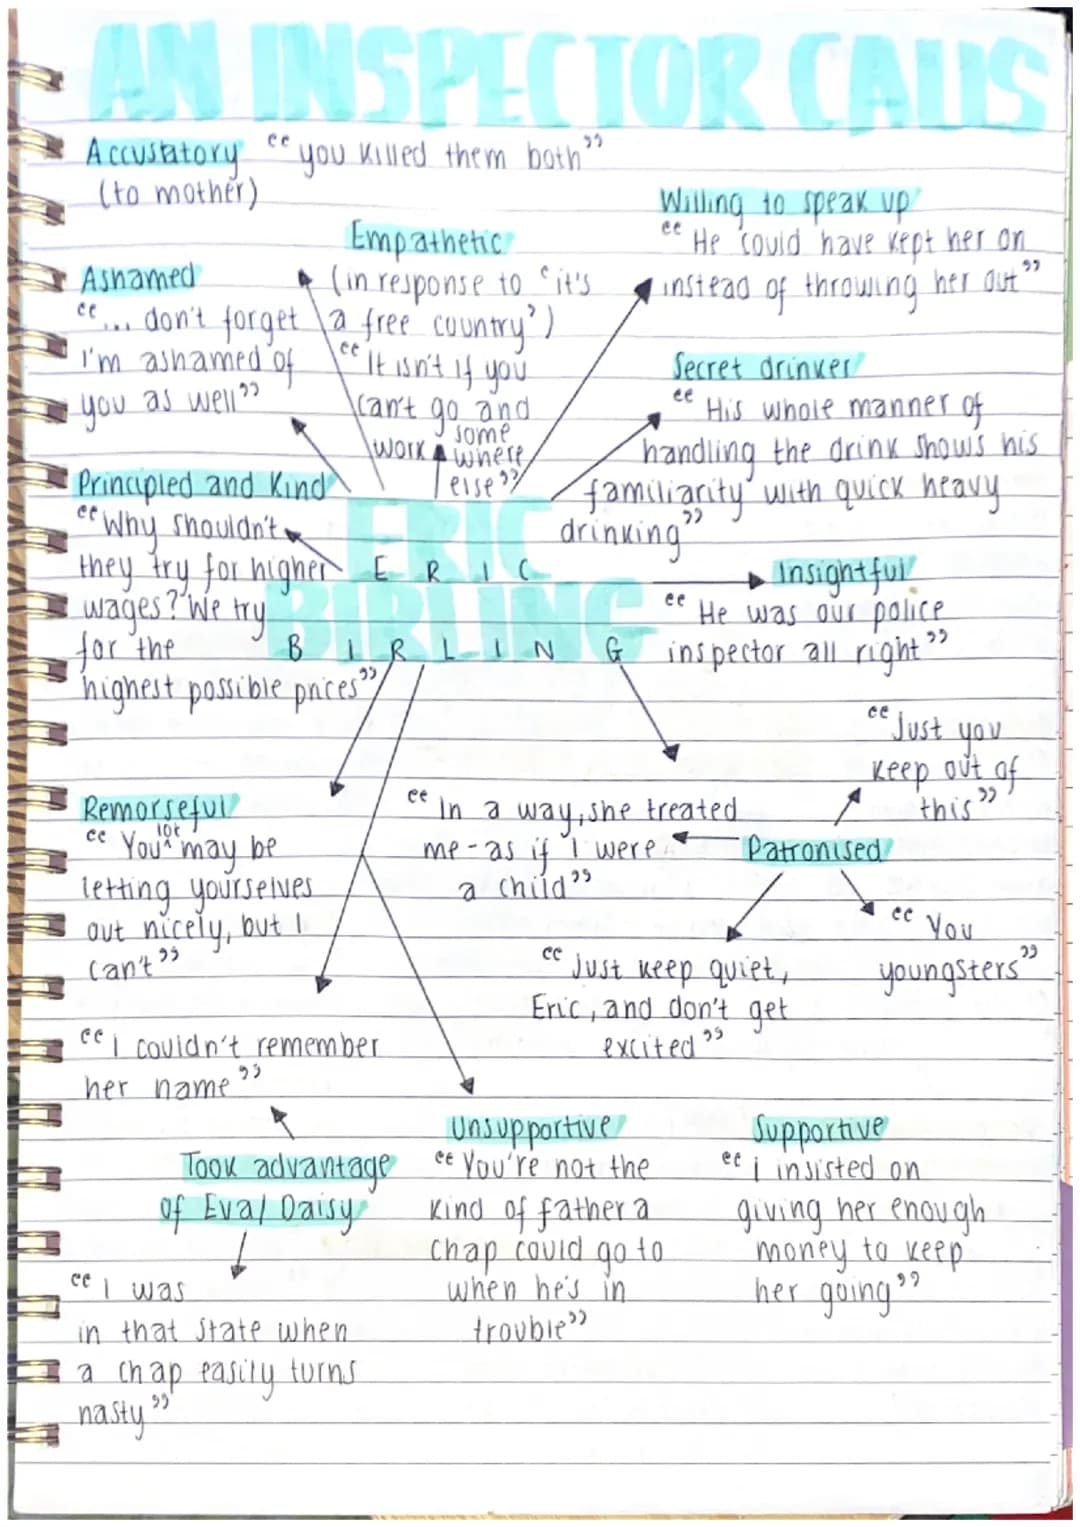 AN INSPECTOR CALLS
Accustatory "you killed them both"
(to mother)
Willing to speak up
"He could have kept her on
instead of throwing her out"
Empathetic
(in response to 'it's
a free country')
"It isn't if you
can't go and
work some
where
else"
Ashamed
"... don't forget
I'm ashamed of
you as well"
Secret drinker
"His whole manner of
handling the drink shows his
familiarity with quick heavy
drinking"
Principled and Kind
"Why shouldn't
they try for higher
wages? We try
for the
highest possible prices"
ERIC
BIRLING
E R I C
B I R L I N G
Insightful
"He was our police
inspector all right"
"Just you
keep out of
this"
Remorseful
"You lot may be
letting yourselves
out nicely, but I
can't"
"In a way, she treated
me - as if I were
a child"
Patronised
"Just keep quiet,
Eric, and don't get
excited"
"You
youngsters"
"I couldn't remember
her name"
Took advantage
of Eva/Daisy
"I was
in that state when
a chap easily turns
nasty"
Unsupportive
"You're not the
kind of father a
chap could go to
when he's in
trouble"
Supportive
"i insisted on
giving her enough
money to keep
her going"